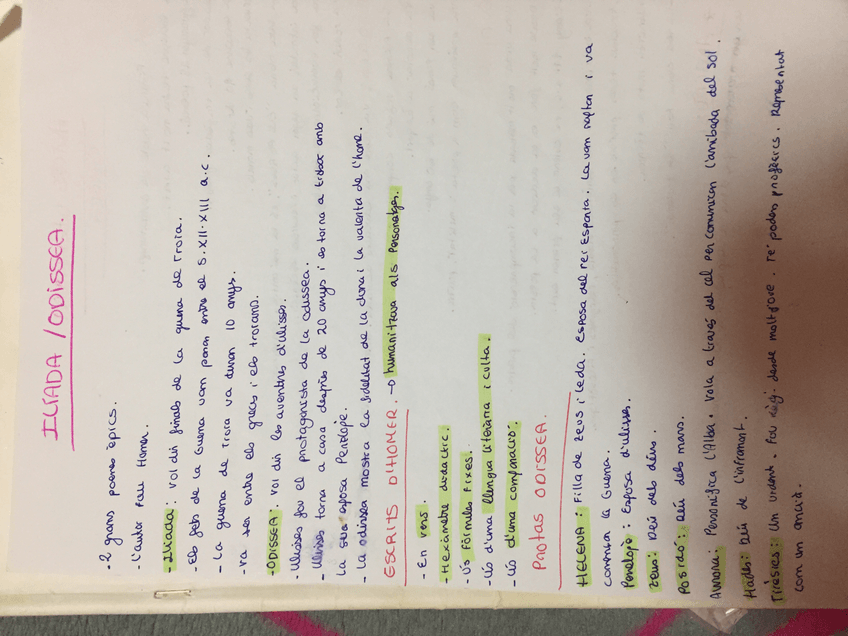 ILÍADA / ODISSEA.
- 2 grans poemes èpics.
- L'autor fou Homer.
- Ilíada: vol dir finals de la guerra de Troia.
- Els fets de la Guerra van passar entre el S. XII-XIII a.c.
- La guerra de Troia va durar 10 anys.
- Va ser entre els grecs i els troians.
- ODISSEA: vol dir les aventures d'ulisses.
- Ulisses fou el protagonista de la Odissea.
- Ulisses torna a casa desprès de 20 anys i es torna a trobar amb
la seva esposa Penèlope.
- La odissea mostra la fidelitat de la dona i la valentia de l'home.
ESCRITS D'HOMER. → humanitzava als personatges.
- En vers.
- Hexàmetre didactic.
- Ús fórmules fixes.
- Ús d'una llengua literària i culta.
- Ús d'una comparació.
Protas ODISSEA.
HELENA: Filla de Zeus i Leda. Esposa del rei Esparta. La van raptar i va
començar la Guerra.
Penèlope: Esposa d'ulisses.
Zeus: Déu dels déus.
Posidó: Déu dels mars.
Aurora: Personifica l'Alba. Vola a través del cel per comunicar l'arribada del sol.
Hades: Déu de l'inframont.
Tirèsies: Un vident. Fou desde molt jove. Té poders profètics. Representat
com un ancià.